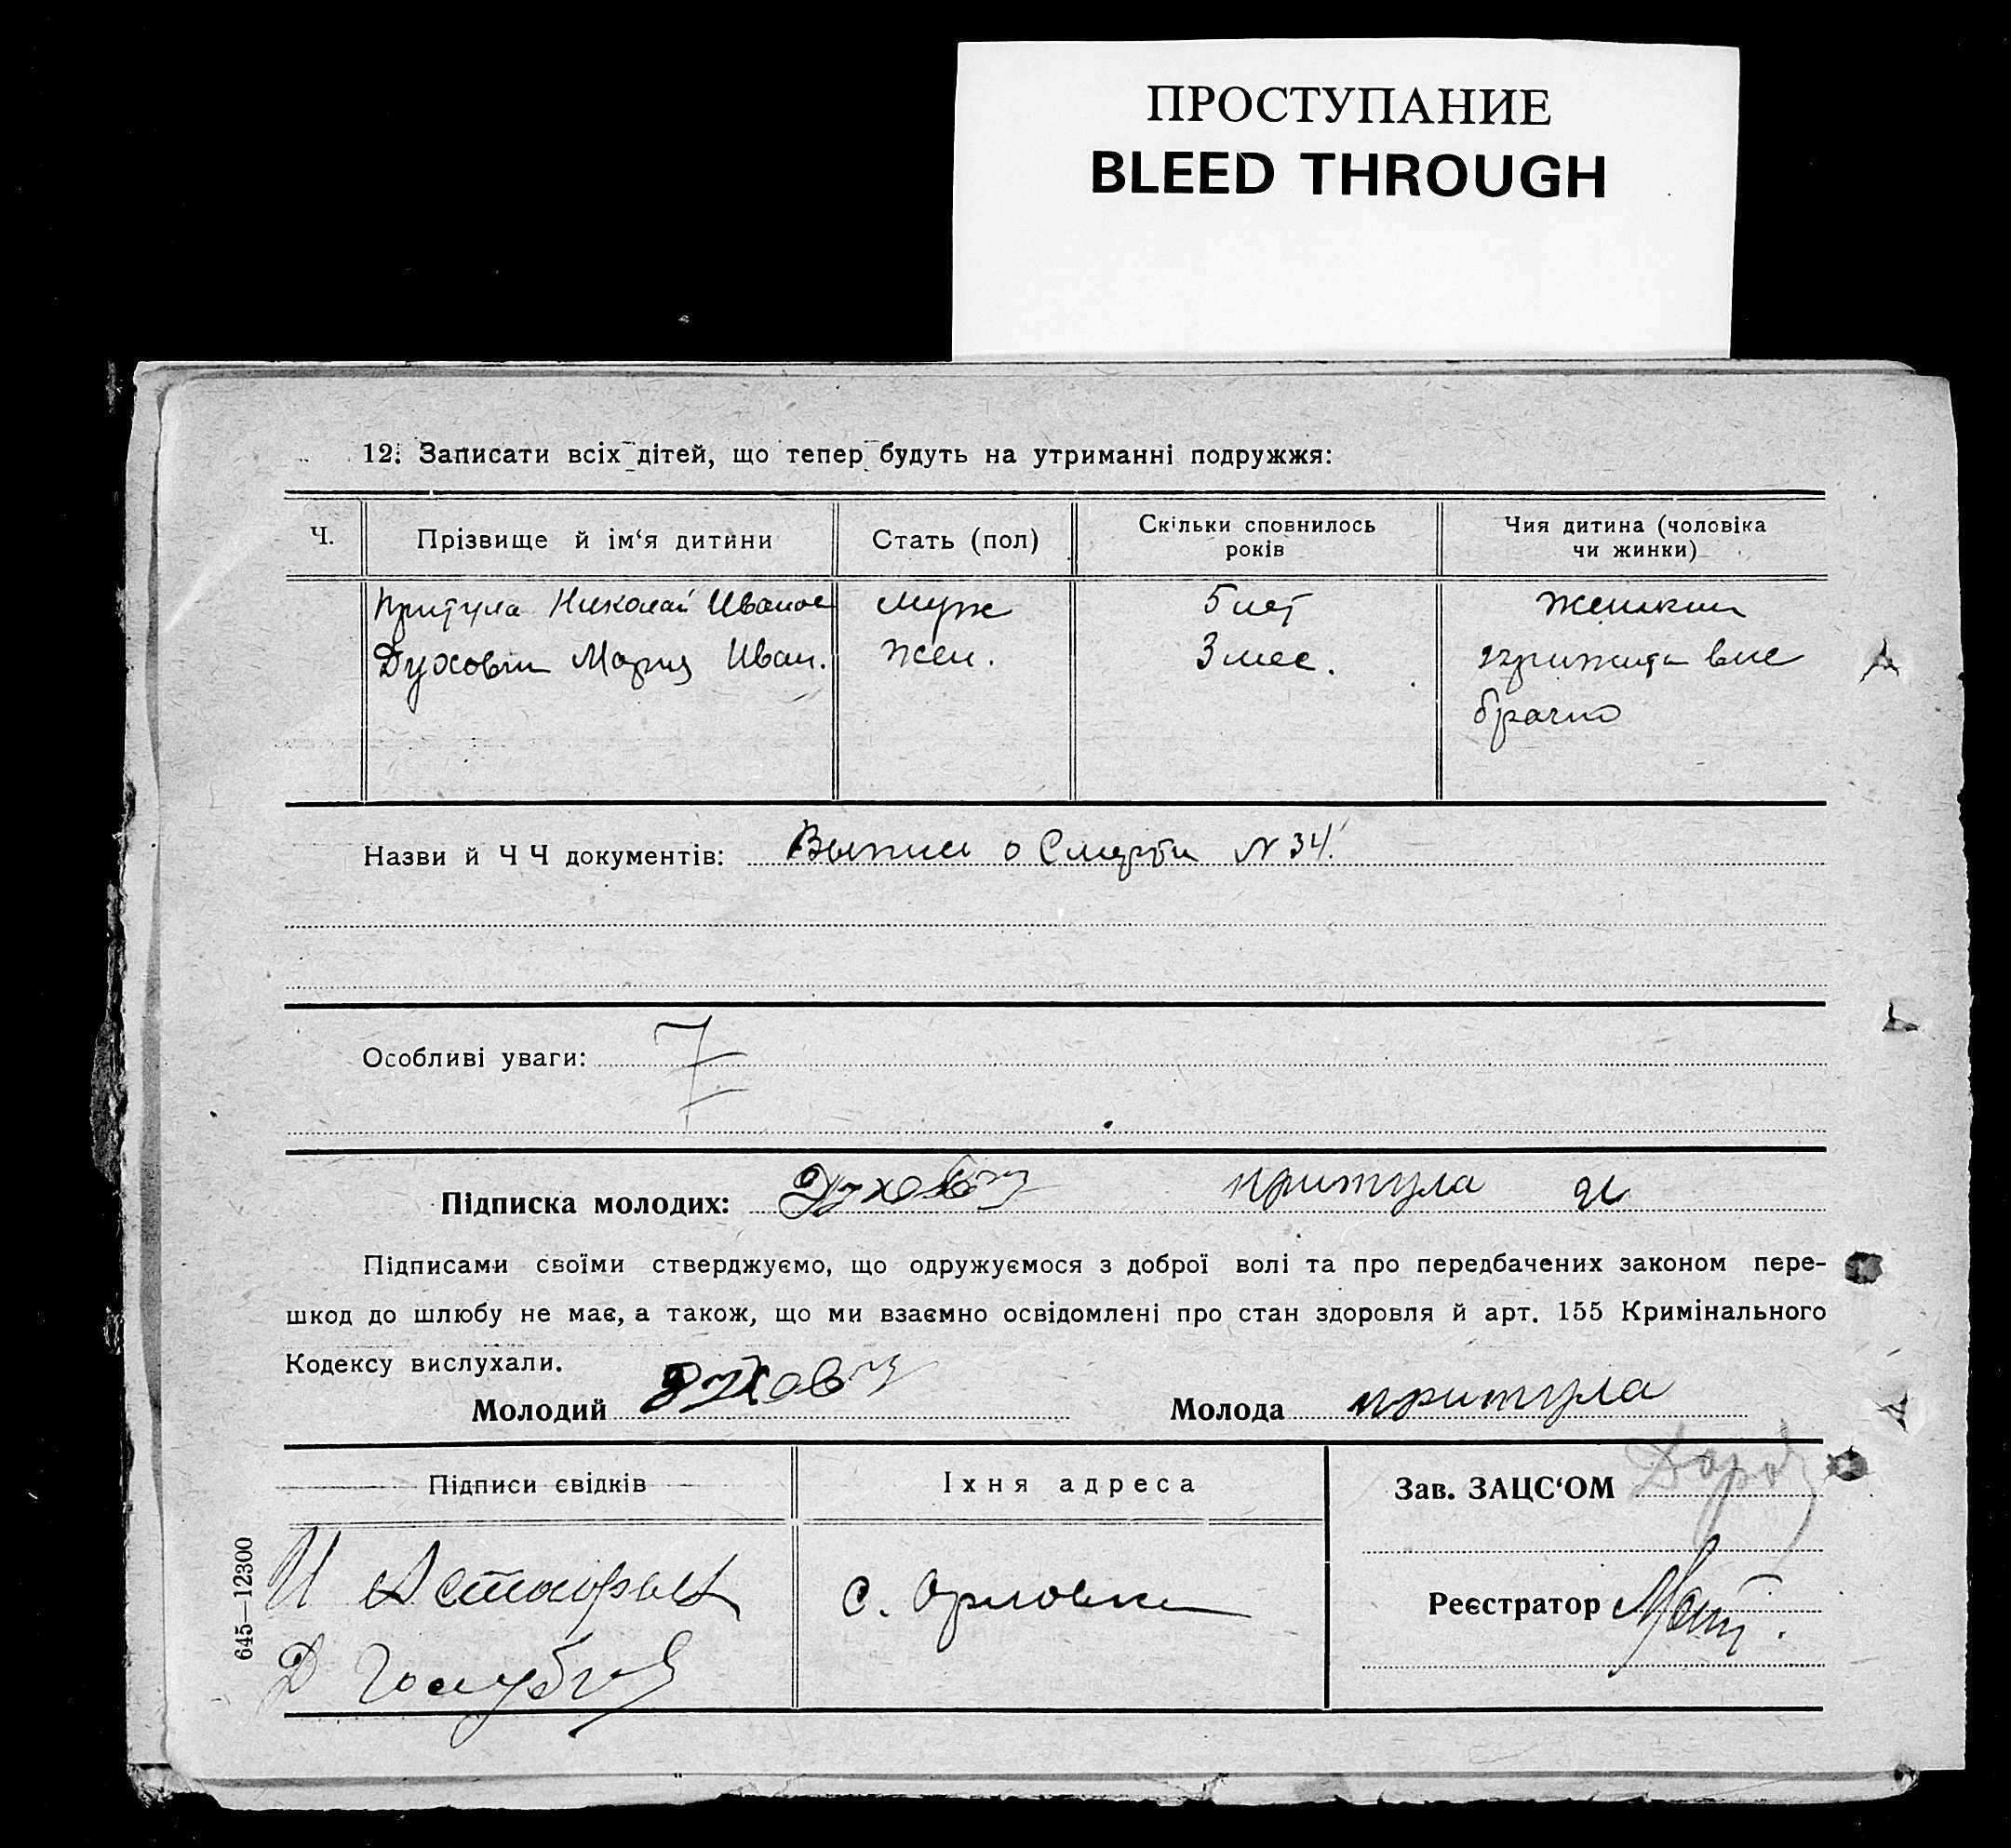 ПРОСТУПАНИЕ
BLEED THROUGH
12. Записати всіх дітей, що тепер будуть на утриманні подружжя:
Ч. Прізвище й ім‘я дитини Стать (пол) Скільки сповнилось років Чия дитина (чоловіка чи жинки)
Притула Николай Иванов муж 5 лет женский
Духовин Мария Иван. жен. 3 мес. прижита вне
брачно
Назви й Ч Ч документів: Выписи о Смерти N 34.
Особливі уваги: 7
Підписка молодих: притула
Підписами своїми стверджуємо, що одружуємося з доброї волі та про передбачених законом пере-
шкод до шлюбу не має, а також, що ми взаємно освідомлені про стан здоровля й арт. 155 Кримінального
Кодексу вислухали.
Молодий Молода притула
Підписи євідків Іхня адреса Зав. ЗАЦС‘ОМ
И с. Орловка Реєстратор
Д
645—12300